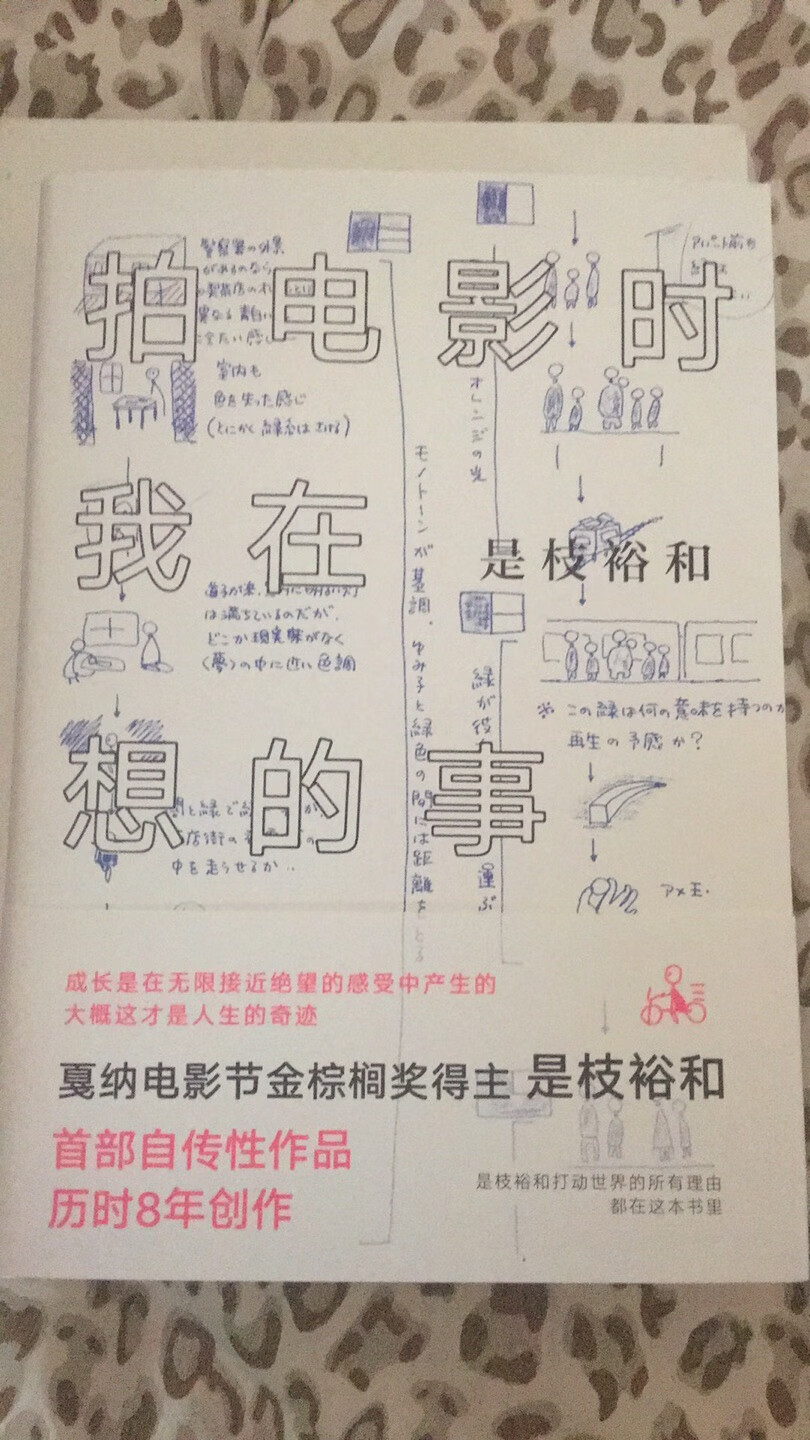 拍电影时
我在
想的事
是枝裕和
警察署の外景
があるのなら
異なる青白い
冷たい感じ
室内も
色を失った感じ
(とにかく緑系はさける)
は満ちているのだが、
どこか現実味がなく
(夢)の中に近い色調
中を走らせるか‥
モノトーンが基調、ゆみ子と緑色の間には距離を
オレンジの光
緑が役
運ぶ
アパート前も
※ この緑は何の意味を持つのか
再生の予感か？
アメ玉・
成长是在无限接近绝望的感受中产生的
大概这才是人生的奇迹
戛纳电影节金棕榈奖得主 是枝裕和
首部自传性作品
历时8年创作
是枝裕和打动世界的所有理由
都在这本书里